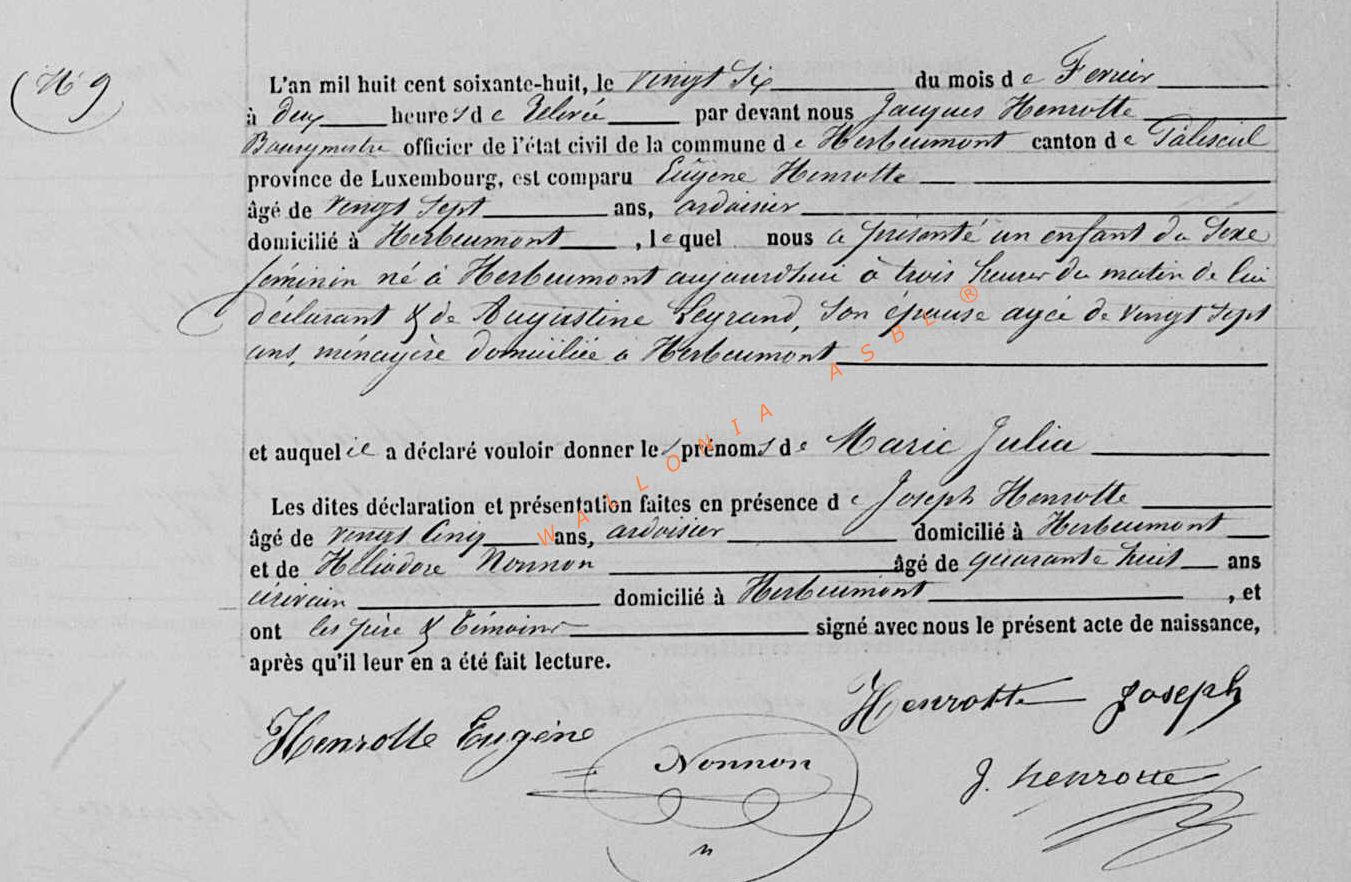 N° 9
L'an mil huit cent soixante-huit, le vingt Six du mois de Fevrier
à deux heures de Relevée par devant nous Jacques Henrotte
Bourgmestre officier de l'état civil de la commune de Herbeumont canton de Paliseul
province de Luxembourg, est comparu Eugène Henrotte
âgé de vingt Sept ans, ardoisier
domicilié à Herbeumont, lequel nous a présenté un enfant du Sexe
féminin né à Herbeumont aujourdhui à trois heures du matin de lui
déclarant & de Augustine Legrand, Son épouse agée de vingt Sept
ans, ménagère domiciliée a Herbeumont
et auquel il a déclaré vouloir donner les prénoms de Marie Julia
Les dites déclaration et présentation faites en présence de Joseph Henrotte
âgé de vingt Cinq ans, ardoisier domicilié à Herbeumont
et de Héliodore Nonnon âgé de quarante huit ans
écrivain domicilié à Herbeumont, et
ont les père & témoins signé avec nous le présent acte de naissance,
après qu'il leur en a été fait lecture.
Henrotte Joseph
Henrotte Eugène
Nonnon
J. henrotte
WALLONIA ASBL ®